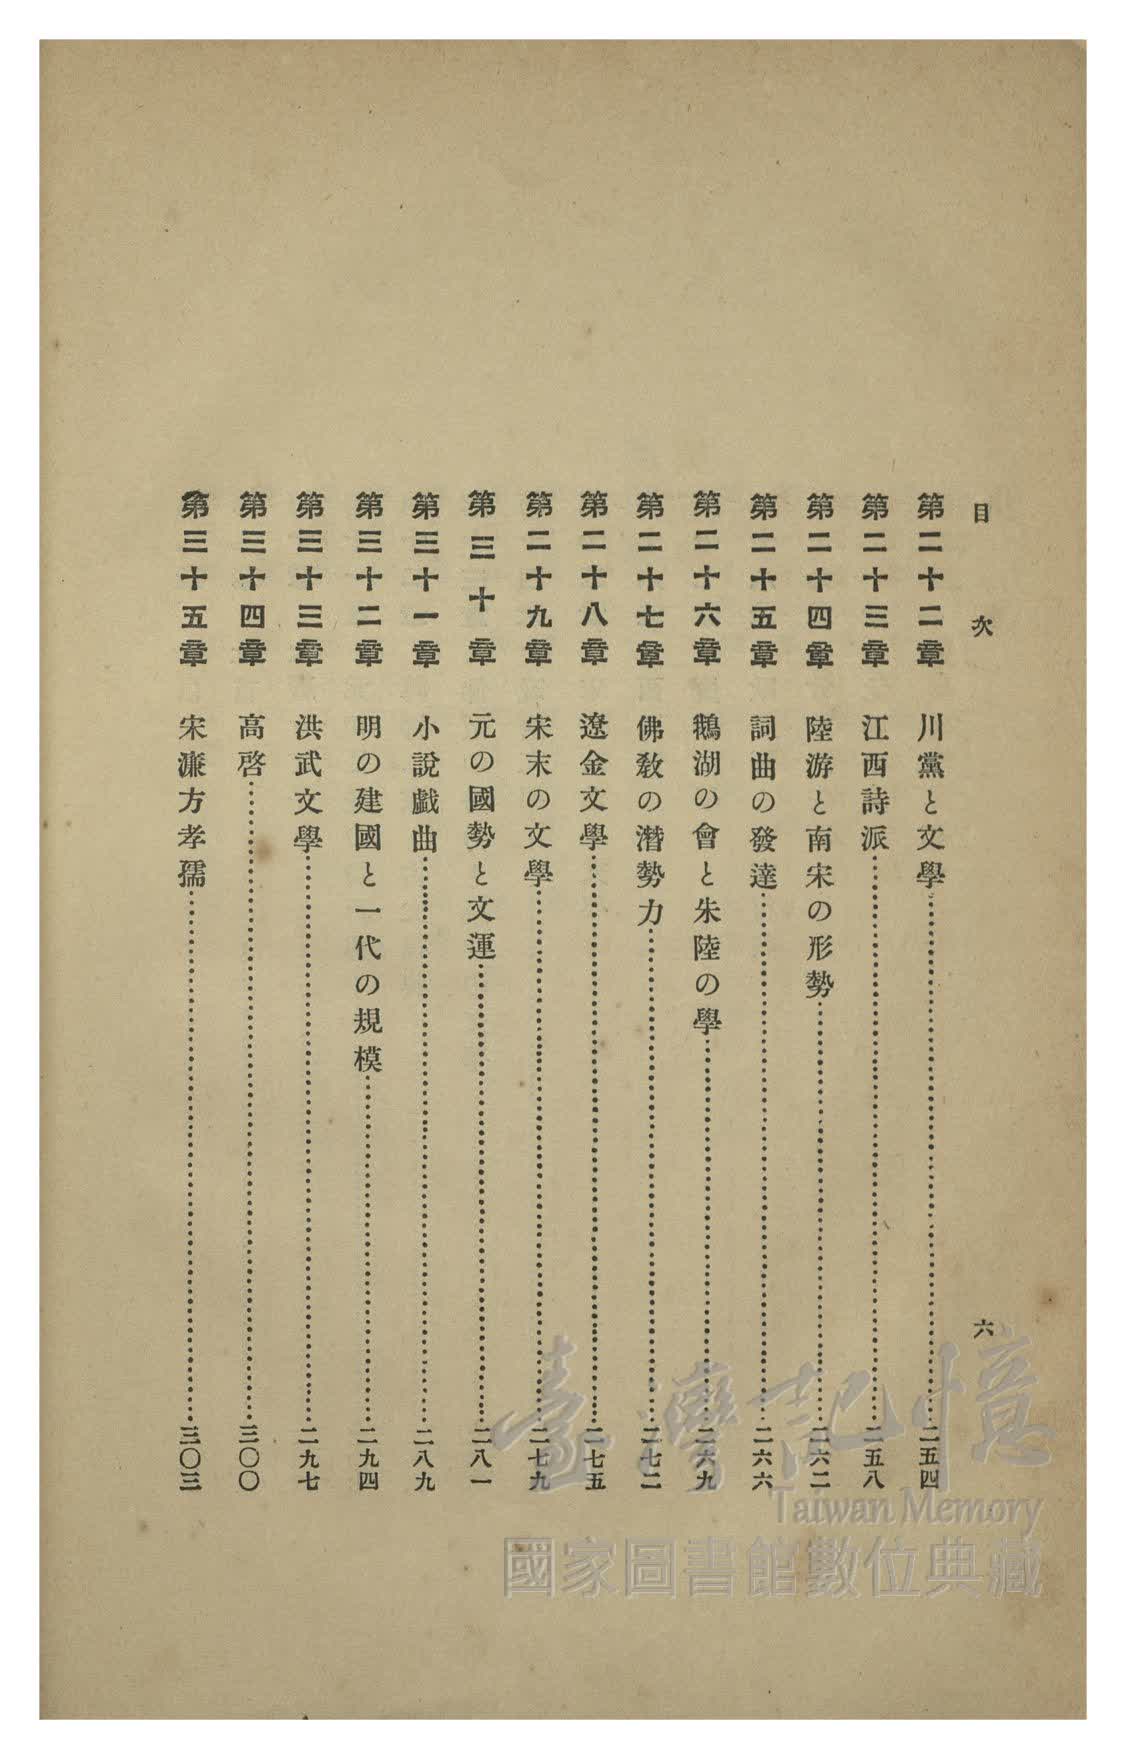 目次
六
第二十二章 川黨と文學 二五四
第二十三章 江西詩派 二五八
第二十四章 陸游と南宋の形勢 二六二
第二十五章 詞曲の發達 二六六
第二十六章 鵝湖の會と朱陸の學 二六九
第二十七章 佛敎の潛勢力 二七二
第二十八章 遼金文學 二七五
第二十九章 宋末の文學 二七九
第三十章 元の國勢と文運 二八一
第三十一章 小說戯曲 二八九
第三十二章 明の建國と一代の規模 二九四
第三十三章 洪武文學 二九七
第三十四章 高啓 三〇〇
第三十五章 宋濂方孝孺 三〇三
臺灣記憶
Taiwan Memory
國家圖書館數位典藏